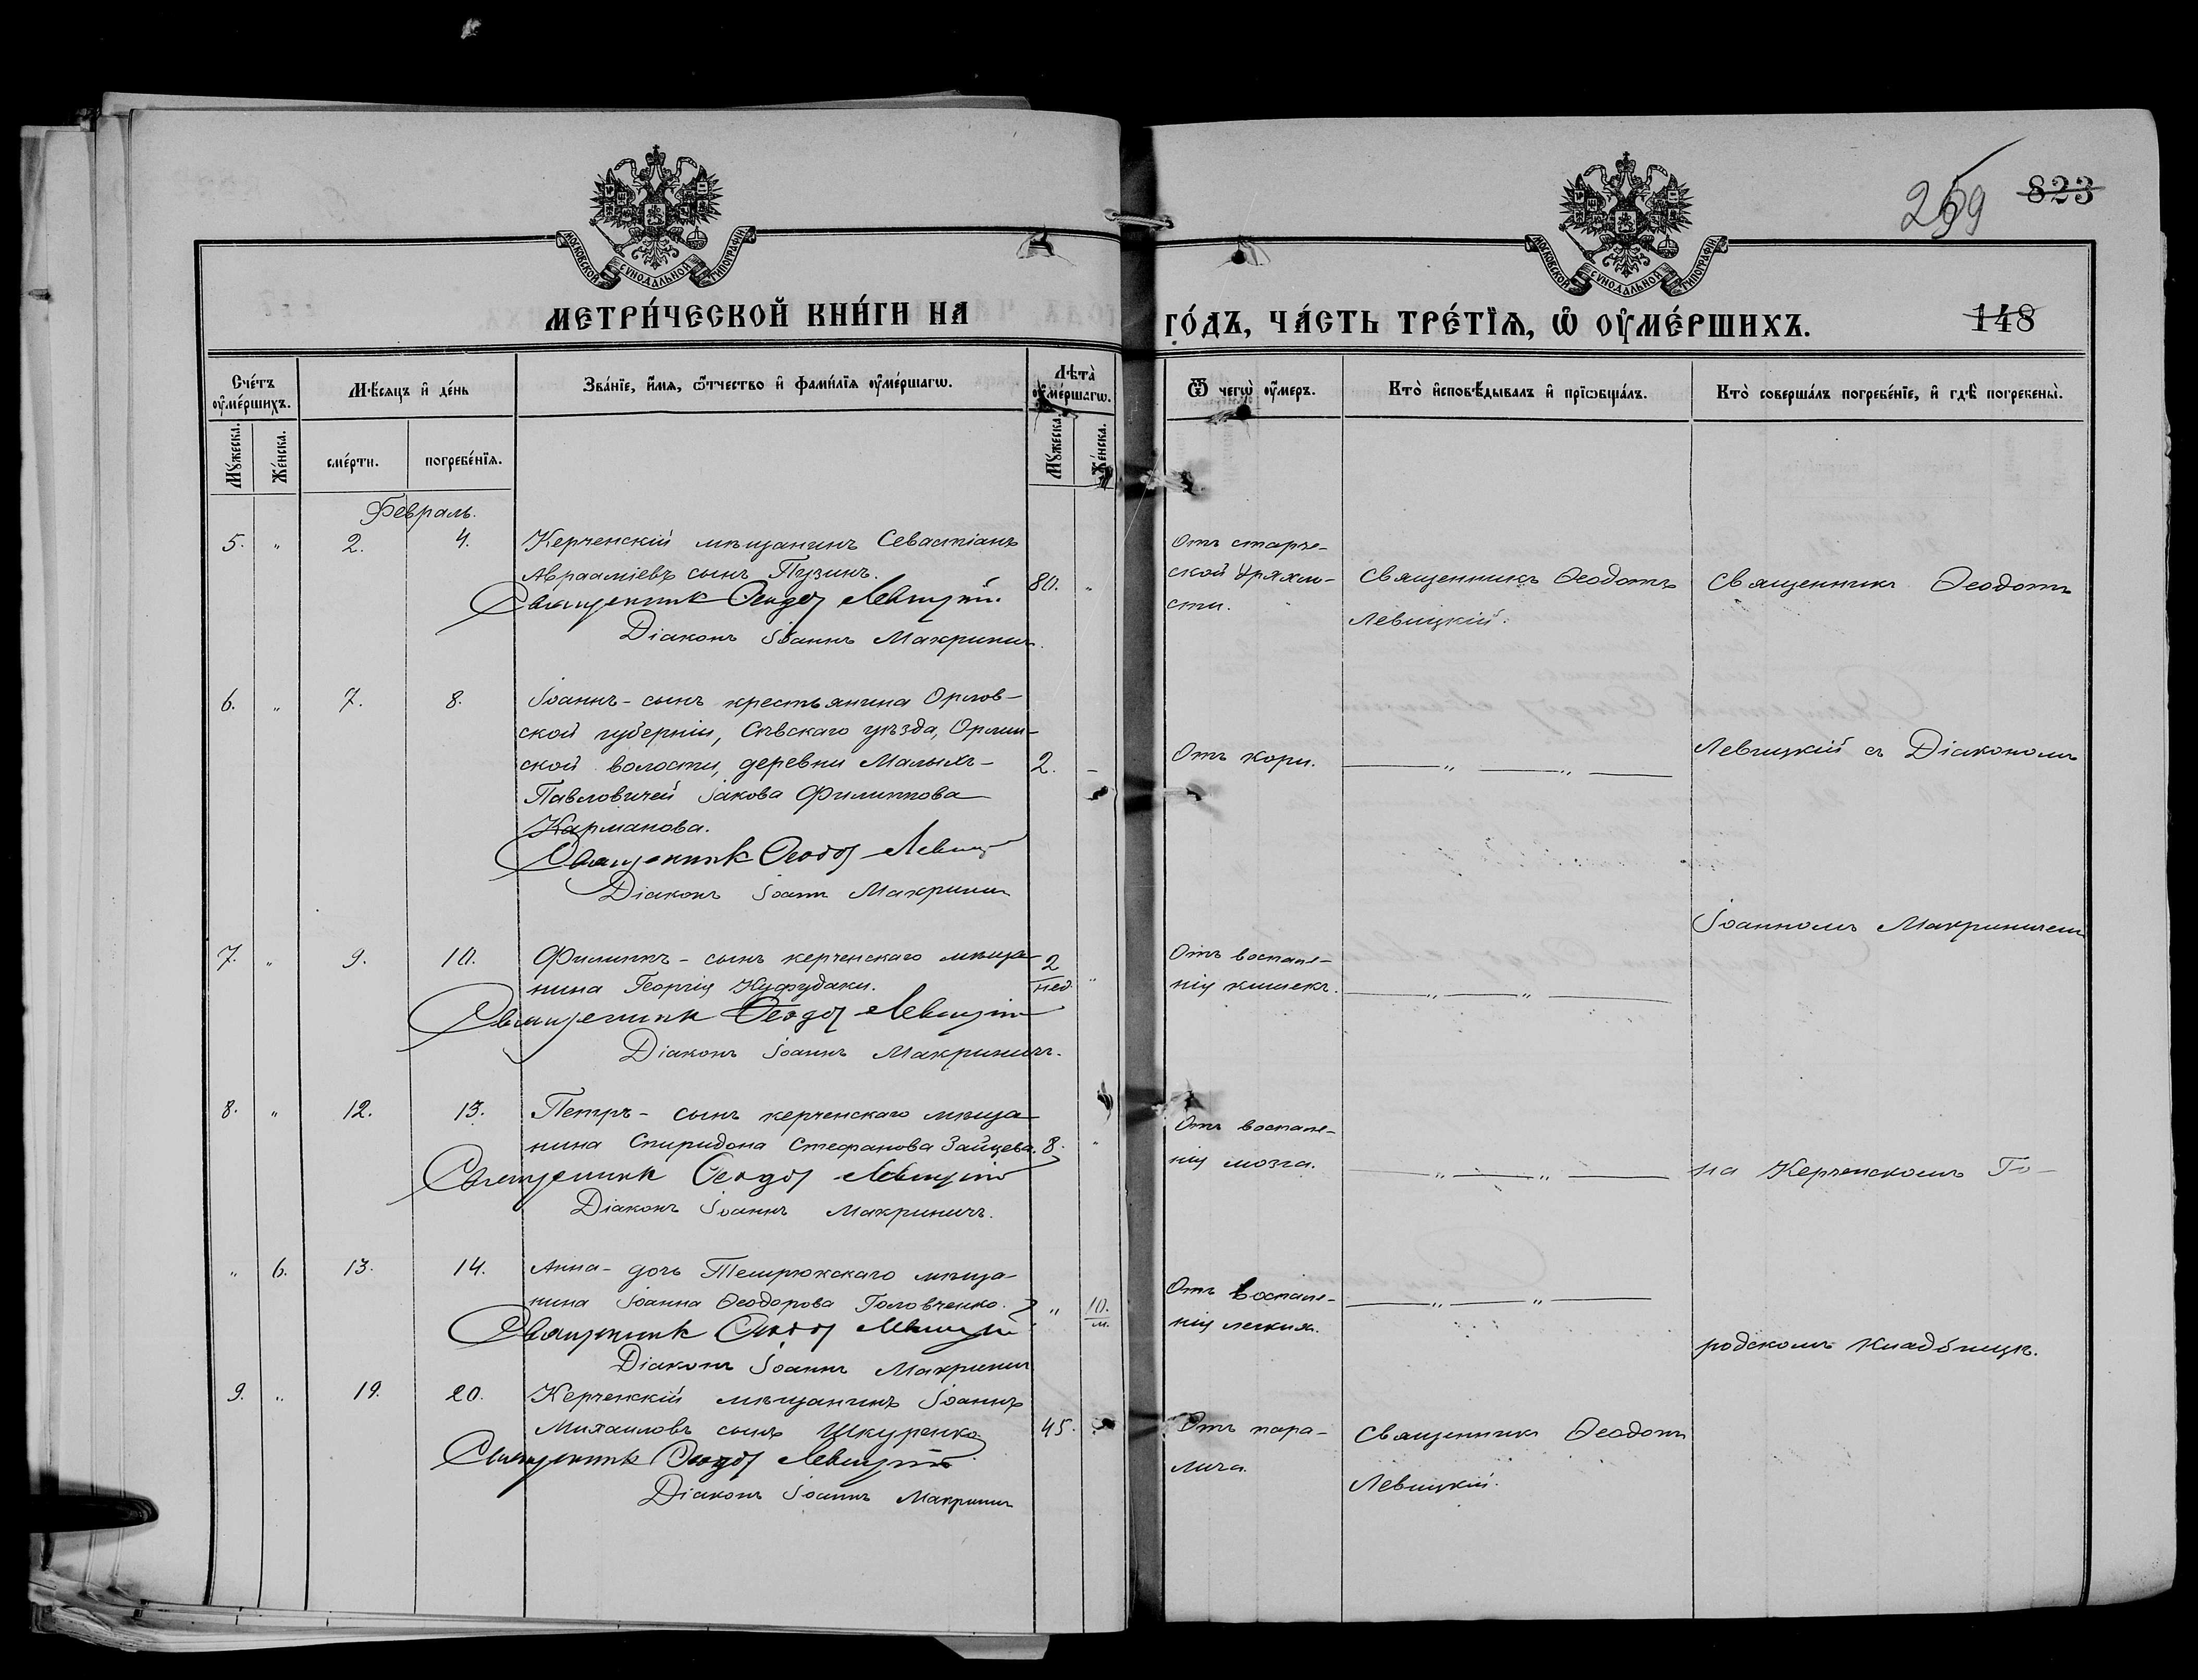 259 823
МОСКОВСКОЙ СѴНОДАЛЬНОЙ ТИПОГРАФІИ
МОСКОВСКОЙ СѴНОДАЛЬНОЙ ТИПОГРАФІИ
МЕТРИ́ЧЕСКОЙ КНИ́ГИ НА ГО́ДЪ, ЧА́СТЬ ТРЕ́ТЇѦ, Ѡ҆ ОУ҆МЕ́РШИХЪ. 148
Сче́тъ оу҆ме́ршихъ.
Мѣ́сяцъ и҆ де́нь
Зва́нїе, и҆́мѧ, ѻ҆́тчество и҆ фами́лїѧ оу҆ме́ршагѡ.
Лѣ́та оу҆ме́ршагѡ.
Ѿ чегѡ̀ оу҆́меръ.
Кто̀ и҆сповѣ́дывалъ и҆ прїѡбща́лъ.
Кто̀ соверша́лъ погребе́нїе, и҆ гдѣ̀ погребены̀.
Мꙋ́жеска. Же́нска. сме́рти. погребе́нїѧ. Мꙋ́жеска. Же́нска.
Февраль.
5. " 2. 4. Керченскій мѣщанинъ Севастіанъ
Авраамiевъ сынъ Пузинъ. 80. "
Священникъ Ѳеодотъ Левицкій.
Діаконъ Іоаннъ Макриничъ.
Отъ старче-
ской дряхло-
сти.
Священникъ Ѳеодотъ
Левицкій.
Священникъ Ѳеодотъ
6. " 7. 8. Іоаннъ - сынъ крестьянина Орлов-
ской губерніи, Сѣвскаго уѣзда, Орлин-
ской волости, деревни Малыхъ- 2. –
Павловичей Іакова Филиппова
Карманова.
Священникъ Ѳеодотъ Левицкій
Діаконъ Іоаннъ Макриничъ
Отъ кори.
— " — " —
Левицкій съ Діакономъ
7. " 9. 10. Филиппъ - сынъ керченскаго мѣща- 2 нед. "
нина Георгія Куфудаки.
Священникъ Ѳеодотъ Левицкій
Діаконъ Іоаннъ Макриничъ.
Отъ воспале-
нія кишекъ.
— " — " —
Іоанномъ Макриничемъ
8. " 12. 13. Петръ - сынъ керченскаго мѣща-
нина Спиридона Стефанова Зайцева. 8. "
Священникъ Ѳеодотъ Левицкій
Діаконъ Іоаннъ Макриничъ.
Отъ воспале-
нія мозга.
— " — " —
на Керченскомъ Го-
" 6. 13. 14. Анна - дочь Темрюкскаго мѣща-
нина Іоанна Ѳеодорова Головченко. " 10. м.
Священникъ Ѳеодотъ Левицкій
Діаконъ Іоаннъ Макриничъ
Отъ воспале-
нія легкихъ.
— " — " —
родскомъ кладбищѣ.
9. " 19. 20. Керченскій мѣщанинъ Іоаннъ
Михаиловъ сынъ Шкуренко. 45.
Священникъ Ѳеодотъ Левицкій
Діаконъ Іоаннъ Макриничъ
Отъ пара-
лича.
Священникъ Ѳеодотъ
Левицкій.